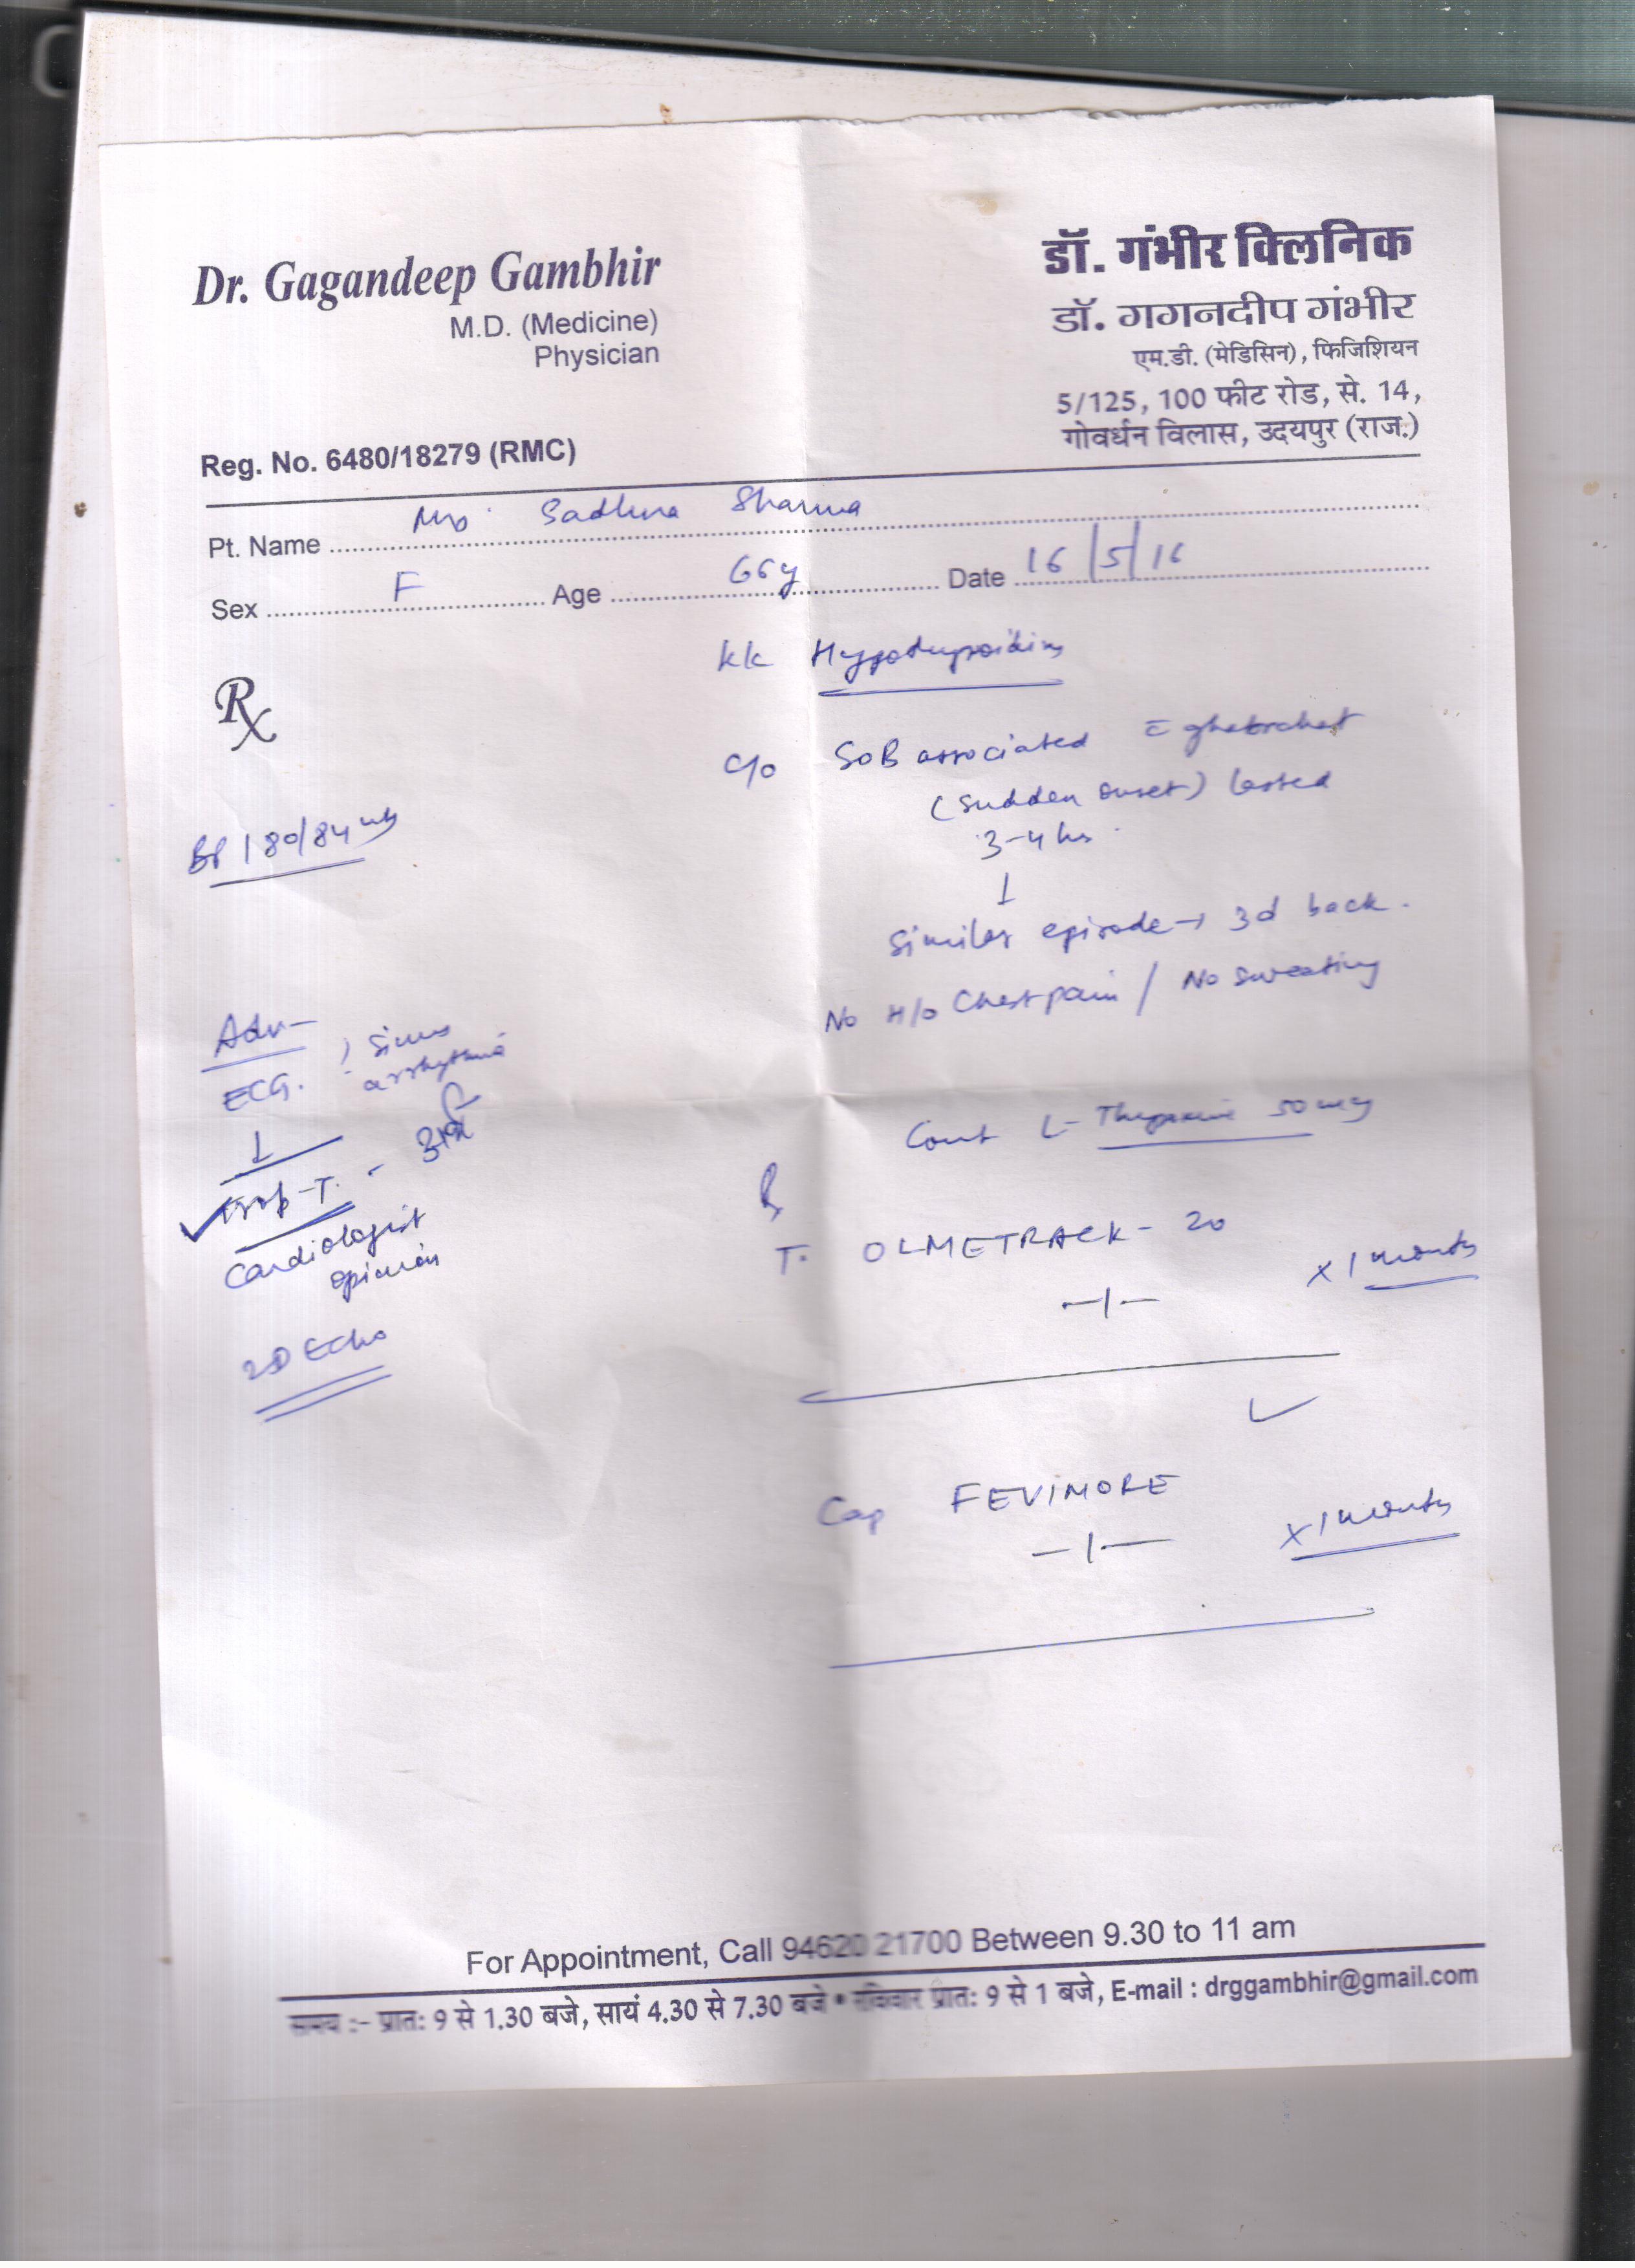 Dr. Gagandeep Gambhir
M.D. (Medicine)
Physician
Reg. No. 6480/18279 (RMC)
डॉ. गंभीर क्लिनिक
डॉ. गगनदीप गंभीर
एम.डी. (मेडिसिन), फिजिशियन
5/125, 100 फीट रोड, से. 14,
गोवर्धन विलास, उदयपुर (राज.)
Pt. Name Mrs. Sadhna Sharma
Sex F Age 66y Date 16/5/16
Rx
BP 180/84
Adv-
ECG. sinus
arrhythmia
Trop-T. -
Cardiologist
opinion
2D Echo
Hypothyroidism
c/o SOB associated
(sudden onset) lasted
3-4 hrs.
↓
Similar episode → 3d back.
No H/o Chest pain / No sweating
Cont L-Thyroxine 50 mcg
T. OLMETRACK - 20
—|— x 1 month
Cap FEVIMORE
—|— x 1 month
For Appointment, Call 94620 21700 Between 9.30 to 11 am
समय :- प्रात: 9 से 1.30 बजे, सायं 4.30 से 7.30 बजे • रविवार प्रात: 9 से 1 बजे, E-mail : drggambhir@gmail.com